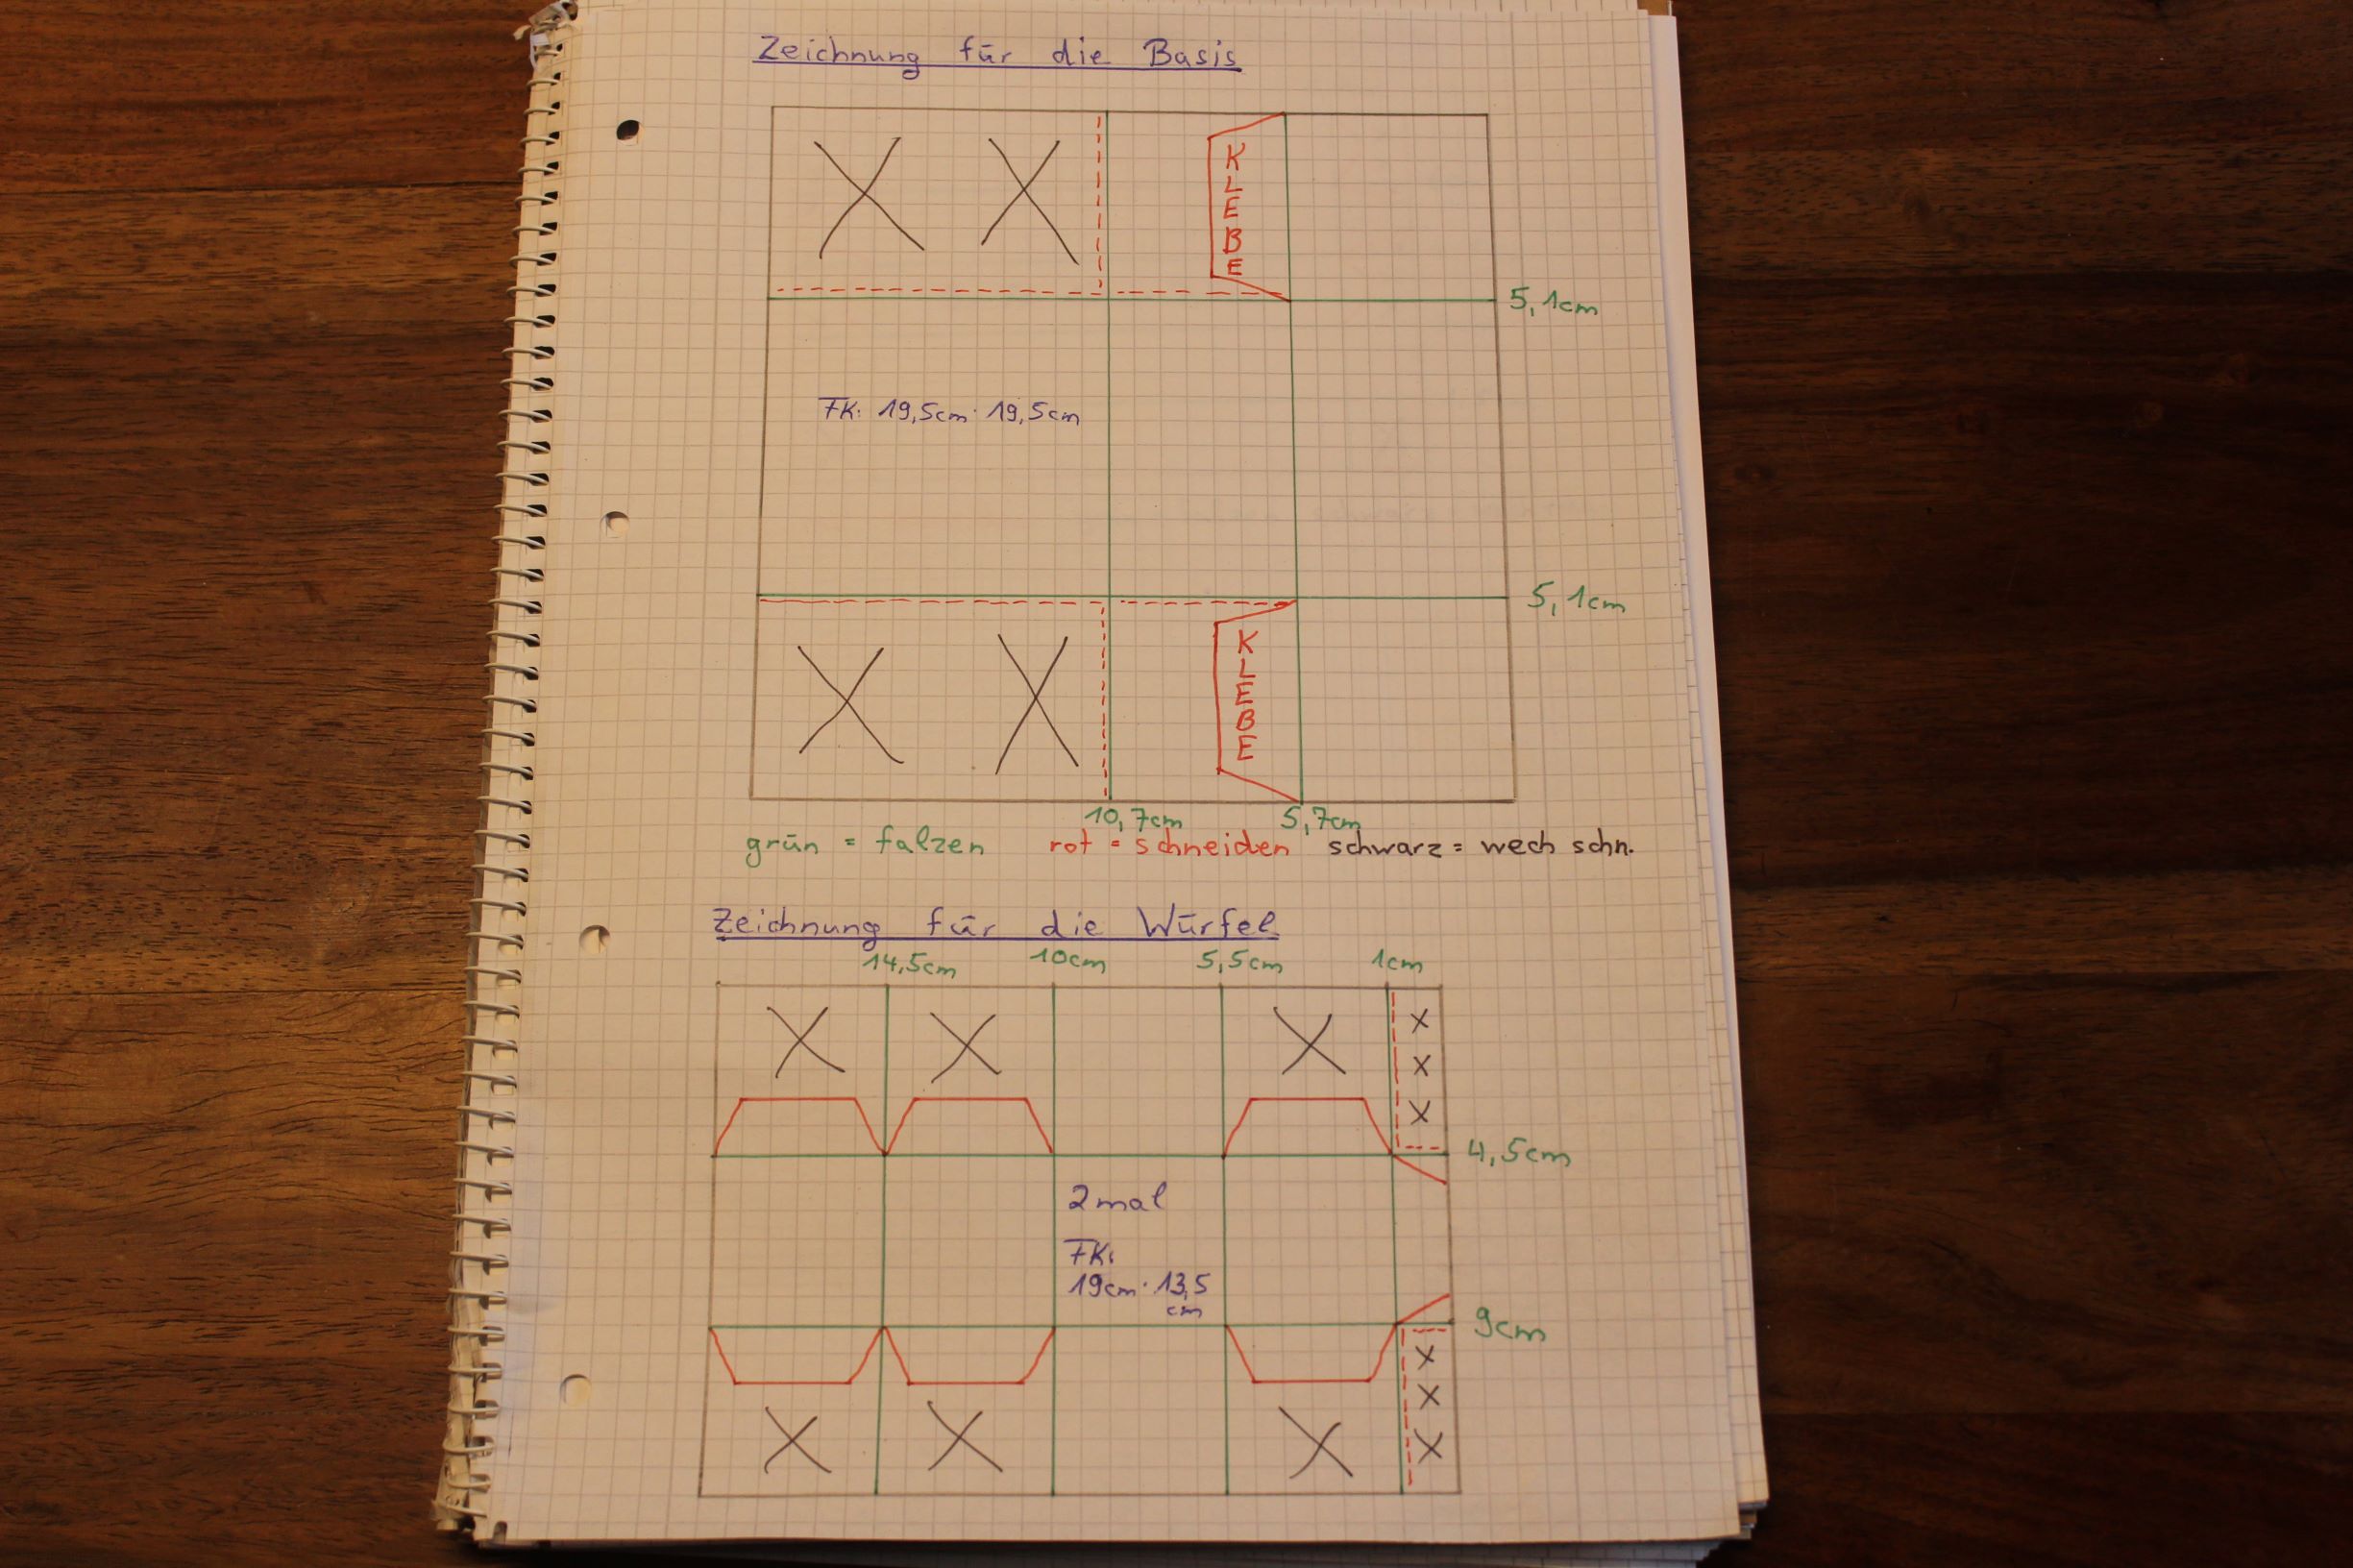 Zeichnung für die Basis
KLEBE
5,1cm
FK: 19,5cm · 19,5cm
5,1cm
KLEBE
10,7cm 5,7cm
grün = falzen rot = schneiden schwarz = wech schn.
Zeichnung für die Würfel
14,5cm 10cm 5,5cm 1cm
4,5cm
2mal
FK:
19cm · 13,5
cm
9cm